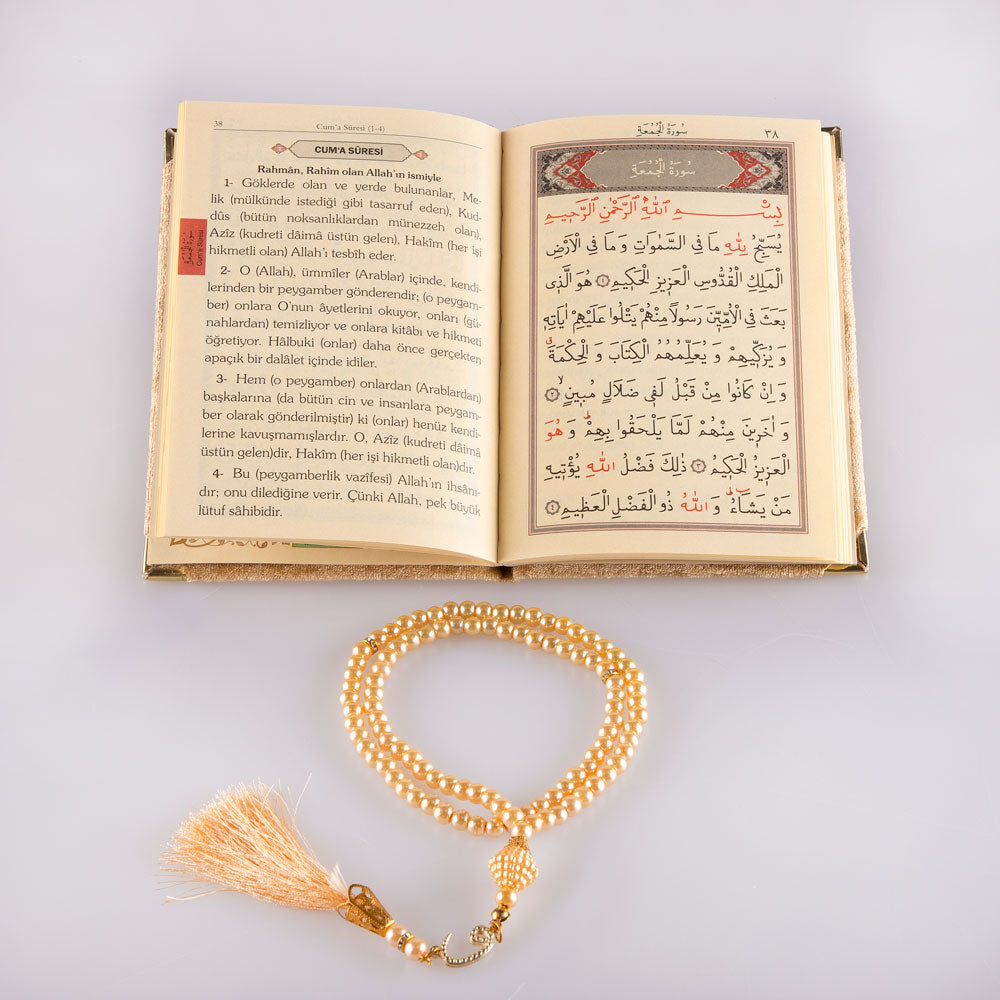 38
Cum'a Sûresi (1-4)
CUM'A SÛRESİ
Rahmân, Rahîm olan Allah'ın ismiyle
1- Göklerde olan ve yerde bulunanlar, Me-
lik (mülkünde istediği gibi tasarruf eden), Kud-
dûs (bütün noksanlıklardan münezzeh olan),
Azîz (kudreti dâimâ üstün gelen), Hakîm (her işi
hikmetli olan) Allah'ı tesbîh eder.
2- O (Allah), ümmîler (Arablar) içinde, kendi-
lerinden bir peygamber gönderendir; (o peygam-
ber) onlara O'nun âyetlerini okuyor, onları (gü-
nahlardan) temizliyor ve onlara kitâbı ve hikmeti
öğretiyor. Hâlbuki (onlar) daha önce gerçekten
apaçık bir dalâlet içinde idiler.
3- Hem (o peygamber) onlardan (Arablardan)
başkalarına (da bütün cin ve insanlara peygam-
ber olarak gönderilmiştir) ki (onlar) henüz kendi-
lerine kavuşmamışlardır. O, Azîz (kudreti dâimâ
üstün gelen)dir, Hakîm (her işi hikmetli olan)dır.
4- Bu (peygamberlik vazîfesi) Allah'ın ihsânı-
dır; onu dilediğine verir. Çünki Allah, pek büyük
lütuf sâhibidir.
سورة الجمعة
Cum'a Sûresi
سُورَةُ الْجُمُعَةِ
٣٨
سُورَةُ الْجُمُعَةِ
بِسْمِ اللهِ الرَّحْمٰنِ الرَّحِيمِ
يُسَبِّحُ لِلّٰهِ مَا فِي السَّمٰوَاتِ وَ مَا فِي الْاَرْضِ
الْمَلِكِ الْقُدُّوسِ الْعَزِيزِ الْحَكِيمِ ١ هُوَ الَّذِي
بَعَثَ فِي الْاُمِّيّٖنَ رَسُولًا مِنْهُمْ يَتْلُوا عَلَيْهِمْ اٰيَاتِهٖ
وَ يُزَكّٖيهِمْ وَ يُعَلِّمُهُمُ الْكِتَابَ وَ الْحِكْمَةَ
وَ اِنْ كَانُوا مِنْ قَبْلُ لَفٖي ضَلَالٍ مُبٖينٍ ٢
وَ اٰخَرٖينَ مِنْهُمْ لَمَّا يَلْحَقُوا بِهِمْ وَ هُوَ
الْعَزٖيزُ الْحَكٖيمُ ٣ ذٰلِكَ فَضْلُ اللهِ يُؤْتٖيهِ
مَنْ يَشَاءُ وَ اللهُ ذُو الْفَضْلِ الْعَظٖيمِ ٤